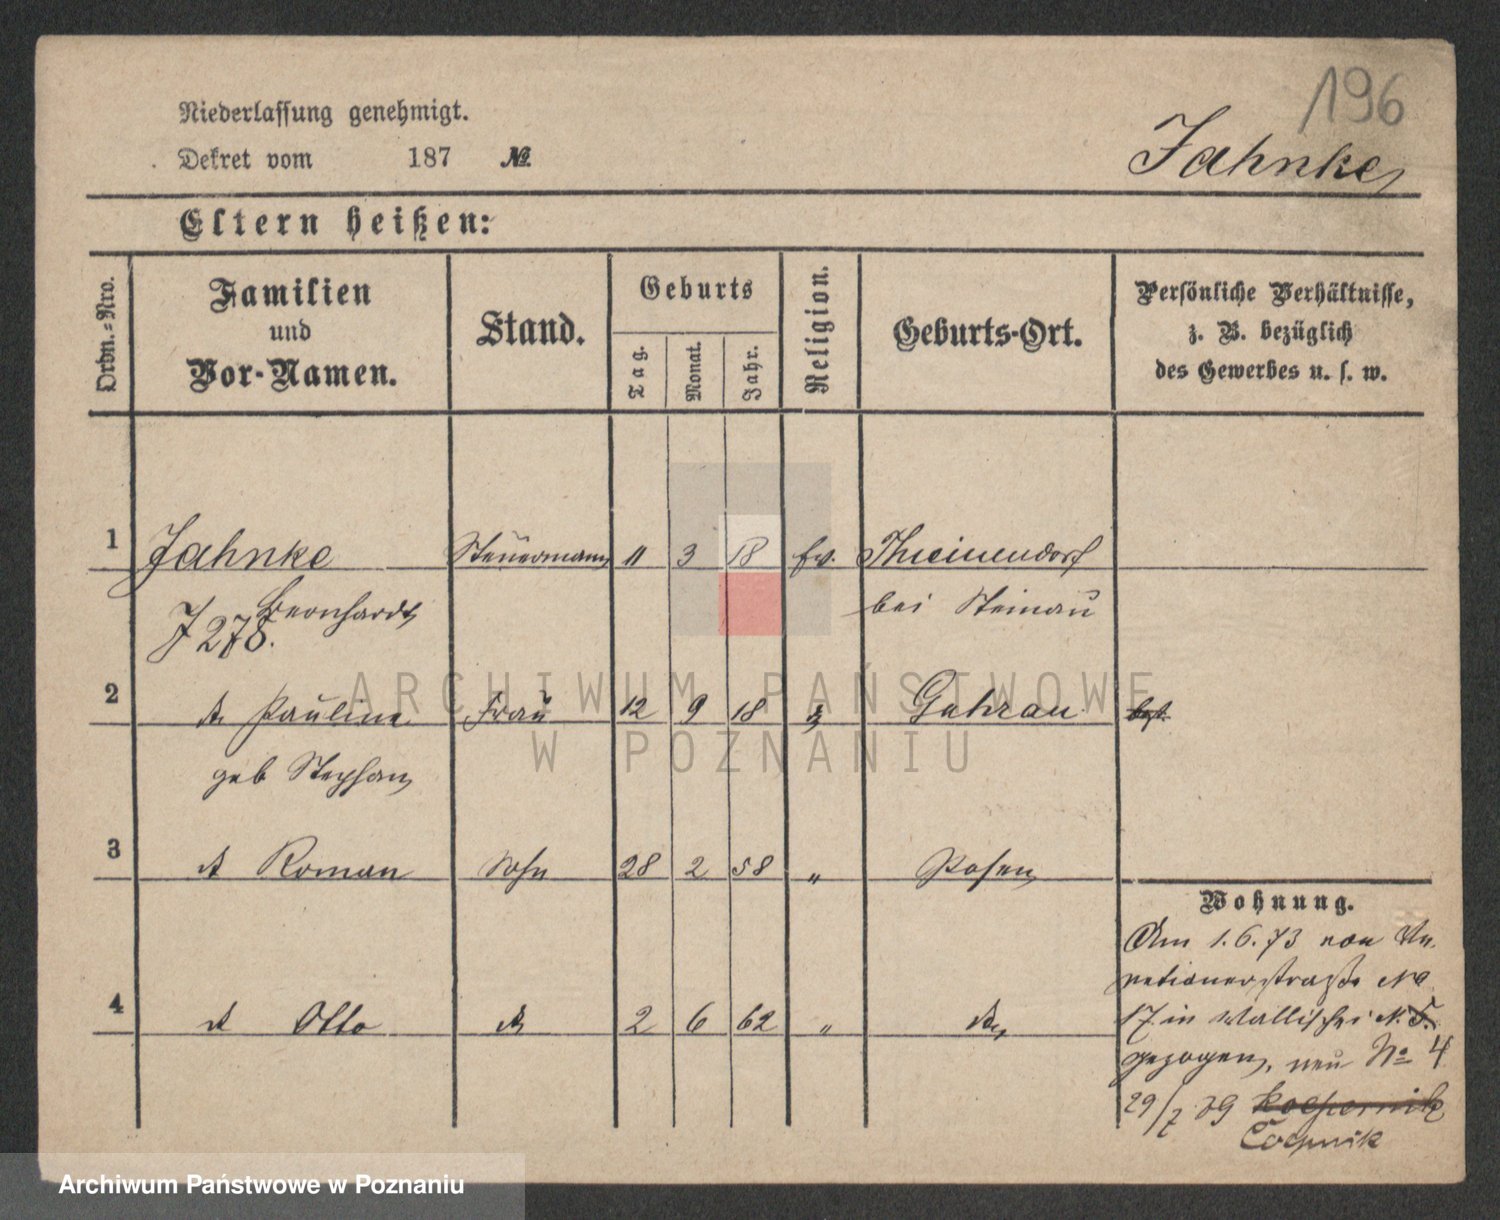 196
Niederlassung genehmigt.
Jahnke
Dekret vom 187 №
Eltern heißen:
Ordn.=Nro.
Familien
und
Vor-Namen.
Stand.
Geburts
Tag.
Monat.
Jahr.
Religion.
Geburts-Ort.
Persönliche Verhältnisse,
z. B. bezüglich
des Gewerbes u. s. w.
1 Jahnke Steuermann 11 3 18 ev. Thieinendorf
Bernhardt bei Steinau
J 278.
2 Pauline Frau 12 9 18 Guhrau
geb Stephan
3 Roman Sohn 28 2 58 " Posen
4 Otto 2 6 62 "
Wohnung.
Am 1.6.73 von
straße No
17 in Wallischei N. 5.
gezogen, neu No 4
29/7 79
ARCHIWUM PAŃSTWOWE
W POZNANIU
Archiwum Państwowe w Poznaniu